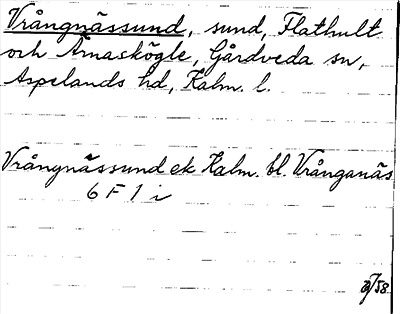 Vrångnässund, sund, Flathult
och Åmaskögle, Gårdveda sn,
Aspelands hd, Kalm. l.
Vrångnässund ek Kalm. bl. Vrånganäs
6 F 1 i
/58